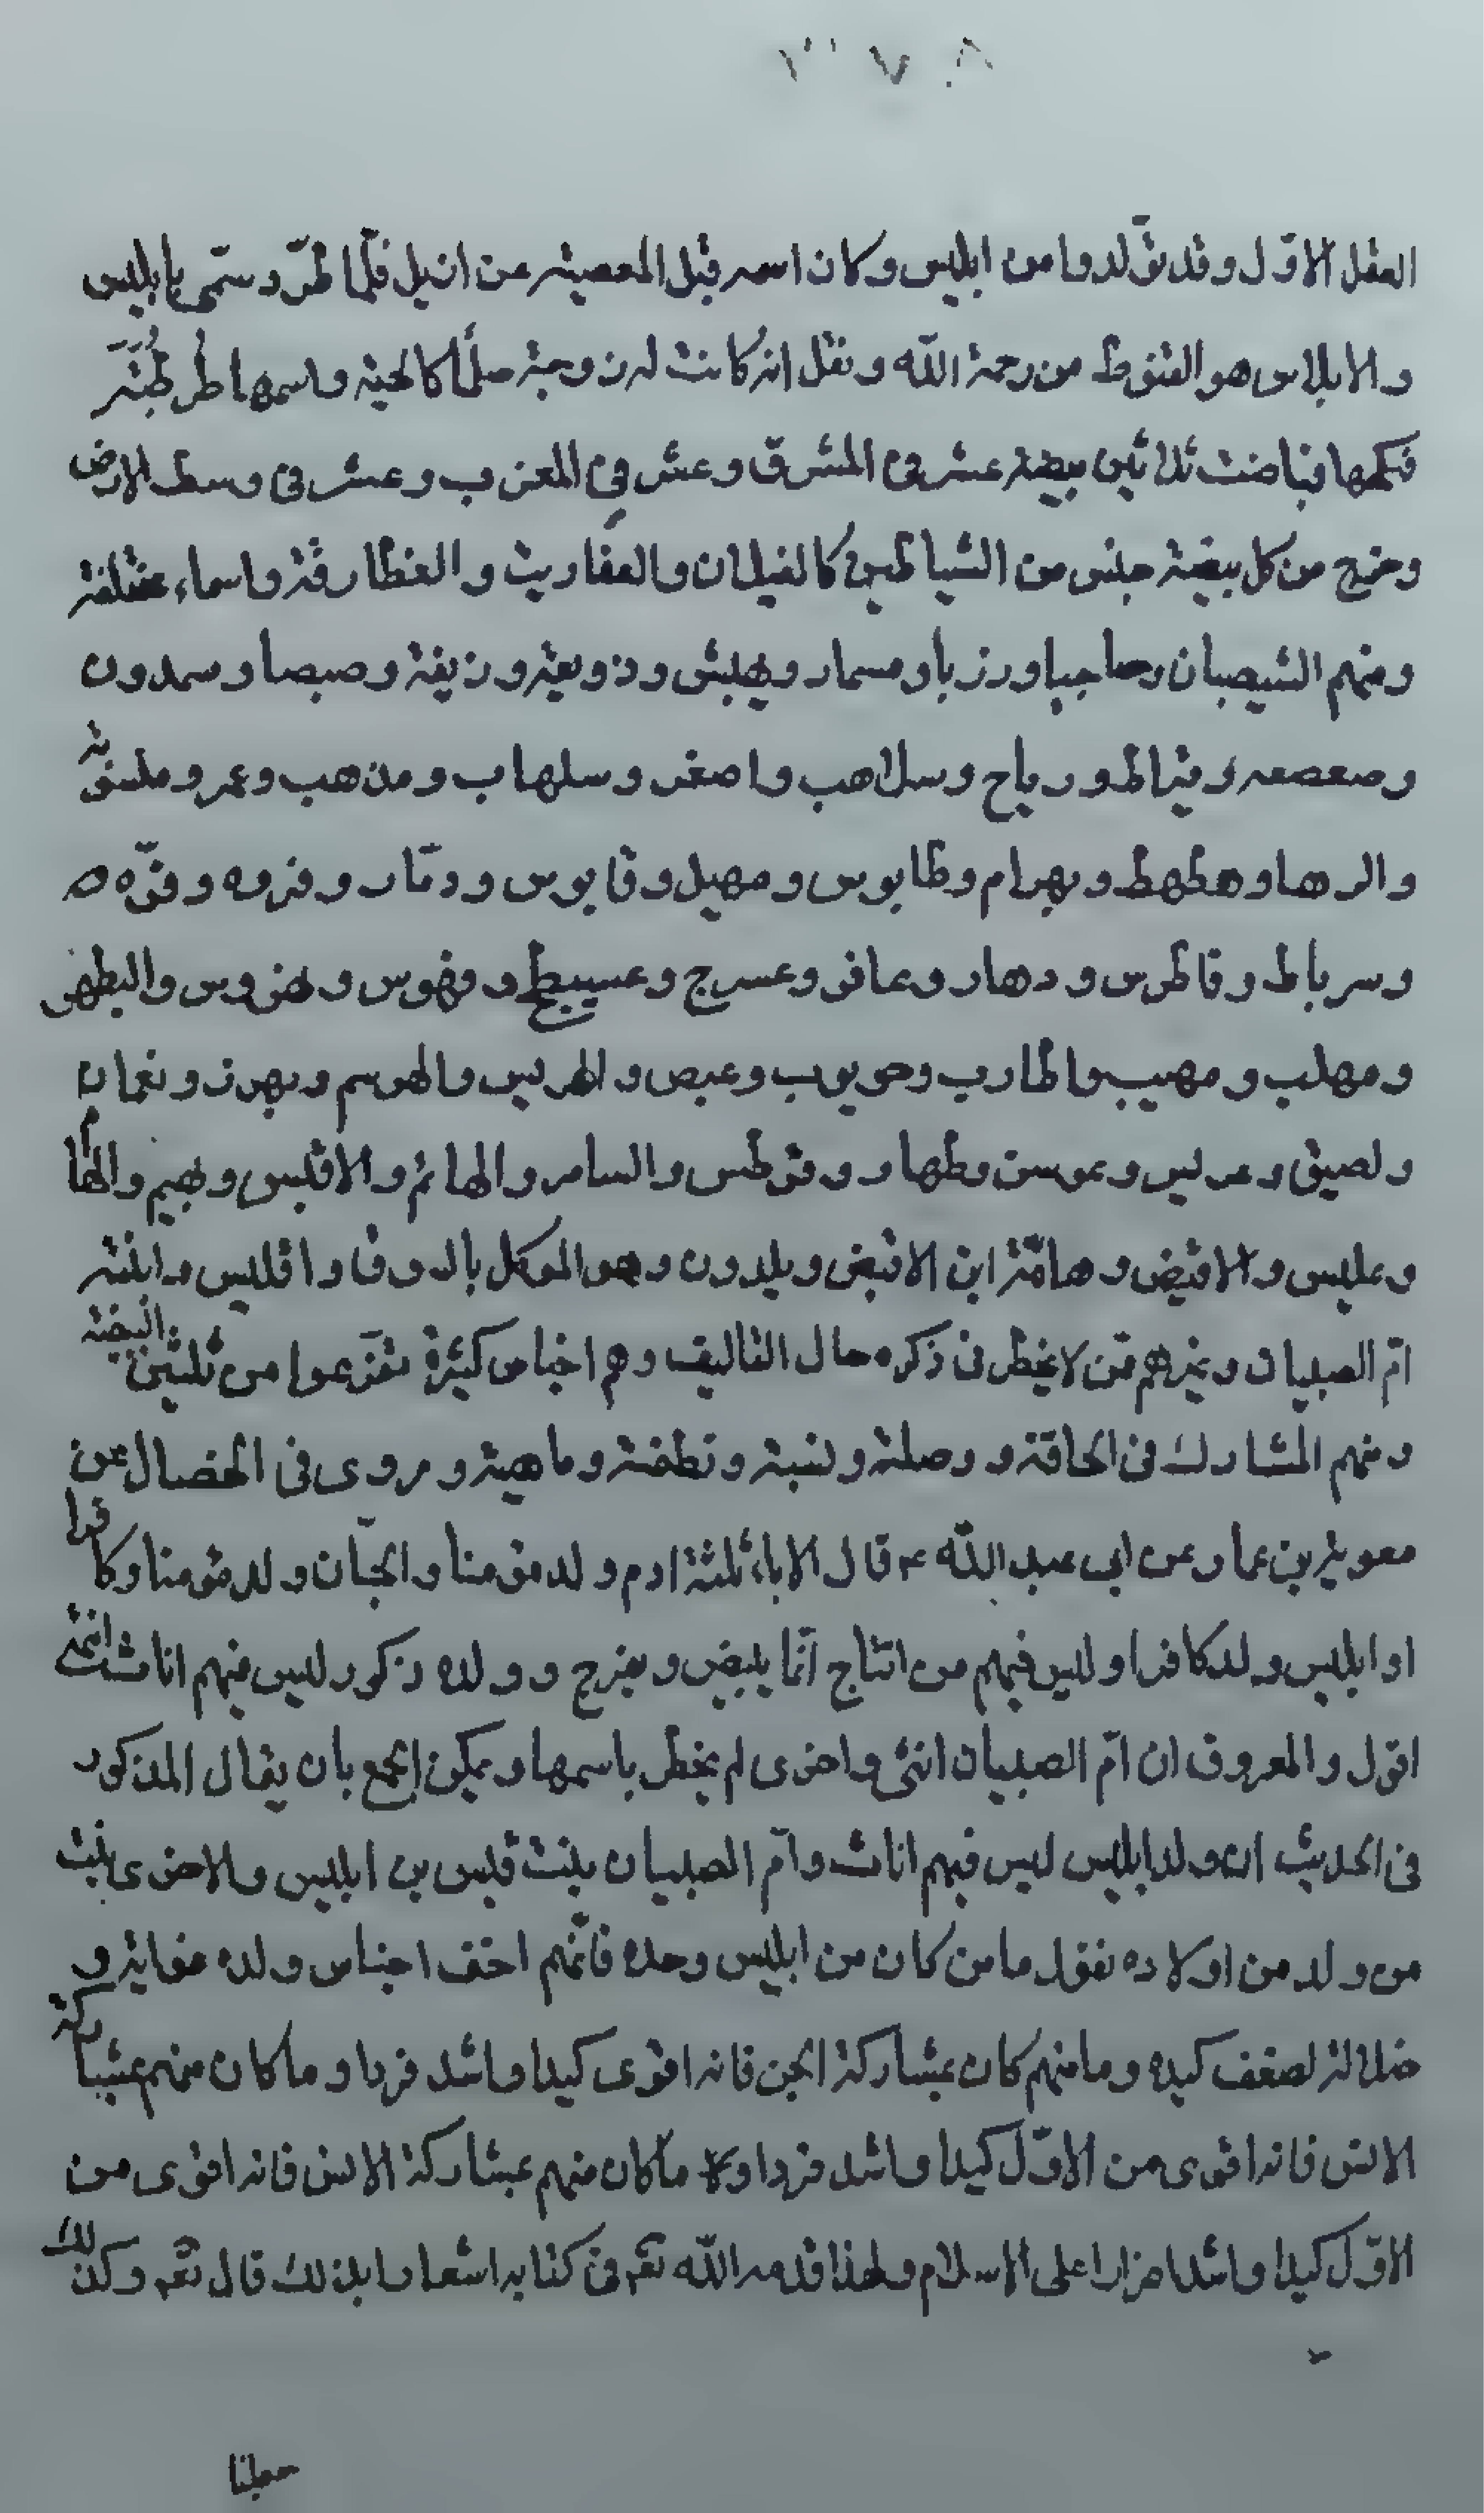 العقل الاوّل وقد تولّدوا من ابليس وكان اسمه قبل المعصية عزازيل فلمّا طرد سمّى بابليس
والابلاس هو القنوط من رحمة الله ونقل انه كانت له زوجة كالحية واسمها طرطبة
فنكحها فباضت ثلاثين بيضة عشر في المشرق وعشر في المغرب وعشر في وسط الارض
وخرج من كل بيضة جنس من الشياطين كالغيلان والعفاريت والغطارفة واسماء مختلفة
ومنهم الشيصبان وصاحبا ورزبا ومسمار وهلبش وذوبعة وزيفة وصبصا وسمدون
وصعصعه ورياح وسلاهب واصغر وسلهاب ومذهب وعمرو
والرها وهطهط وبهرام وطابوس ومهيل وقابوس ودمّار وفروه وفرّه
وسرباط وقاطرس ودهار وعافر وعسرج وعسيبط وفهوس
ومهلب ومهيب والمارب وحويرب وعيص والهريس والهرسم وبهرز ونعمان
ولصيق وطهار وقرطس والسامر والهائم والاقبس
وعليس والاقيض وهامّة ابن الاقبض ويلدون وهو الموكل بالدوق واقليس وابنته
امّ الصبيان وغيرهم ممّن لا يخطر في ذكره حال التاليف وهم اجناس كثيرة تفرّعوا من ثلثين البيضة
ومنهم المشارك في الحاقة ووصلة ونسبة ونطفة وماهية وروى في الخصال عن
معوية بن عمار عن ابي عبد الله ع قال الاباء ثلثة ادم ولد مؤمنا والجانّ ولد مؤمنا وكافرا
وابليس ولد كافرا وليس فيهم من انتاج انّما يبيض ويفرخ وولده ذكور ليس فيهم اناث انتهى
اقول والمعروف ان امّ الصبيان انثى واخرى لم يخطر باسمها ويمكن الجمع بان يقال المذكور
في الحديث ان ولد ابليس ليس فيهم اناث وامّ الصبيان بنت قبس بن ابليس والاخرى بنت
من ولد من اولاده نقول ما من كان من ابليس وحده فانّهم اخف اجناس ولده غواية و
ضلالة لضعف كيده وما منهم كان بمشاركة الجن فانه اقوى كيدا واشد فردا وما كان منهم بمشاركة
الانس فانه اقوى من الاوّل كيدا واشد فردا وما كان منهم بمشاركة الانس فانه اقوى من
الاوّل كيدا واشد ضرارا على الاسلام ولهذا قدمه الله تعم في كتابه اشعارا بذلك قال تعم وكذلك
جعلنا